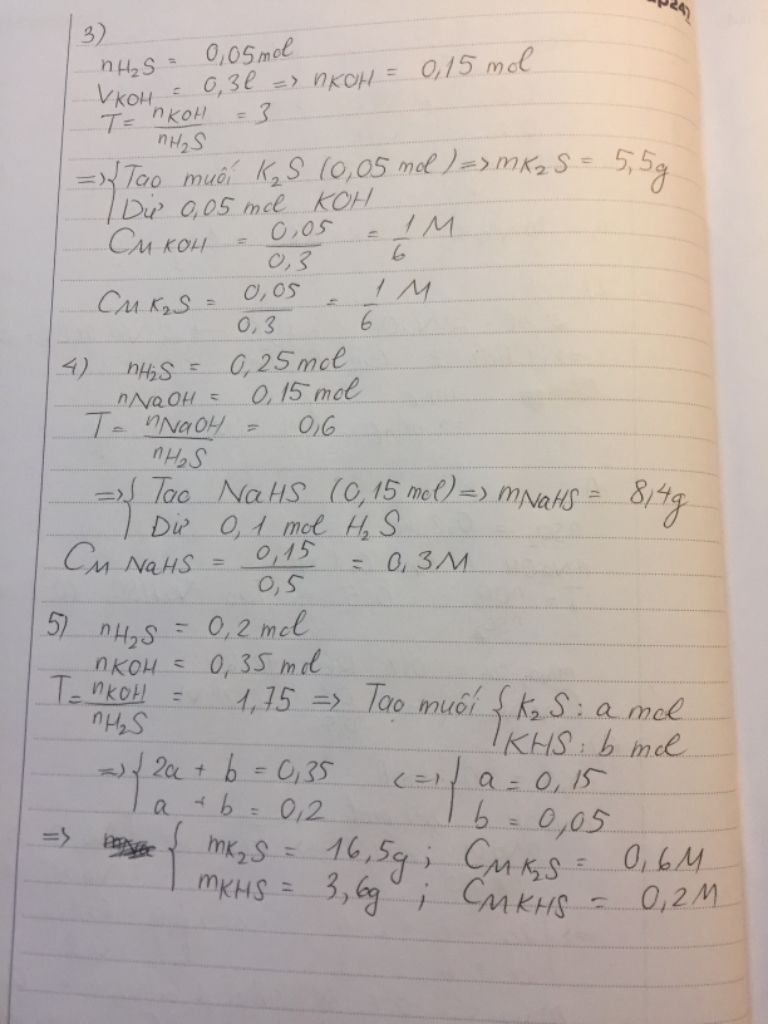 3)
nH₂S = 0,05 mol
VKOH = 0,3l => nKOH = 0,15 mol
T = nKOH / nH₂S = 3
=> { Tạo muối K₂S (0,05 mol) => mK₂S = 5,5g
Dư 0,05 mol KOH
CM KOH = 0,05 / 0,3 = 1/6 M
CM K₂S = 0,05 / 0,3 = 1/6 M
4) nH₂S = 0,25 mol
nNaOH = 0,15 mol
T = nNaOH / nH₂S = 0,6
=> { Tạo NaHS (0,15 mol) => mNaHS = 8,4g
Dư 0,1 mol H₂S
CM NaHS = 0,15 / 0,5 = 0,3M
5) nH₂S = 0,2 mol
nKOH = 0,35 mol
T = nKOH / nH₂S = 1,75 => Tạo muối { K₂S : a mol
KHS : b mol
=> { 2a + b = 0,35 <=> { a = 0,15
a + b = 0,2 b = 0,05
=> { mK₂S = 16,5g ; CM K₂S = 0,6M
mKHS = 3,6g ; CM KHS = 0,2M